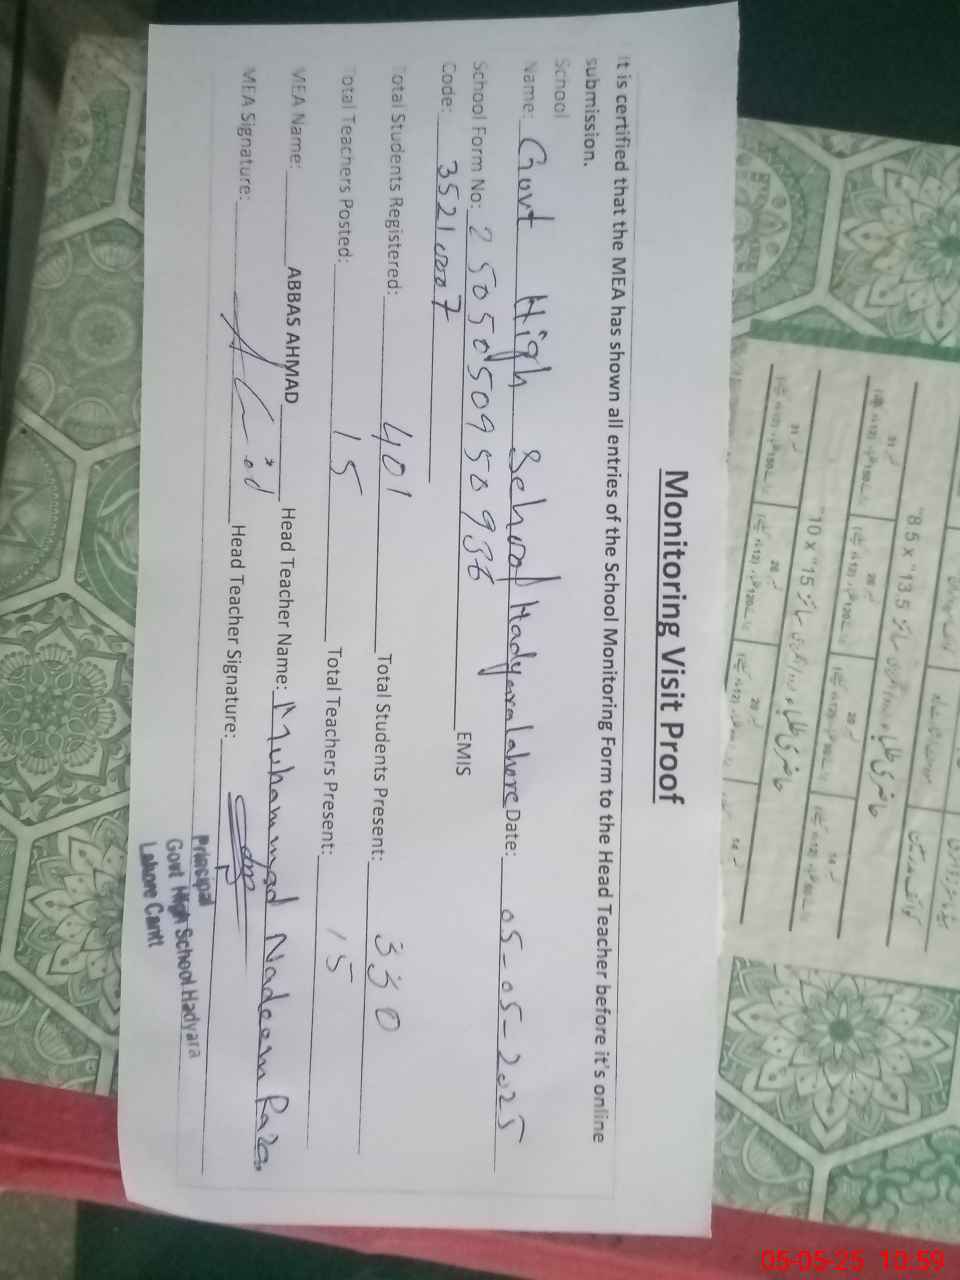 Monitoring Visit Proof
It is certified that the MEA has shown all entries of the School Monitoring Form to the Head Teacher before it's online
submission.
School
Name: Govt High School Hadyara Lahore Date: 05-05-2025
School Form No: 2505050950936 EMIS
Code: 35210007
Total Students Registered: 401 Total Students Present: 330
Total Teachers Posted: 15 Total Teachers Present: 15
MEA Name: ABBAS AHMAD Head Teacher Name: Muhammad Nadeem Raza
MEA Signature: Head Teacher Signature:
Principal
Govt High School Hadyara
Lahore Cantt
"8.5 x "13.5
"10 x "15
05-05-25 10:59